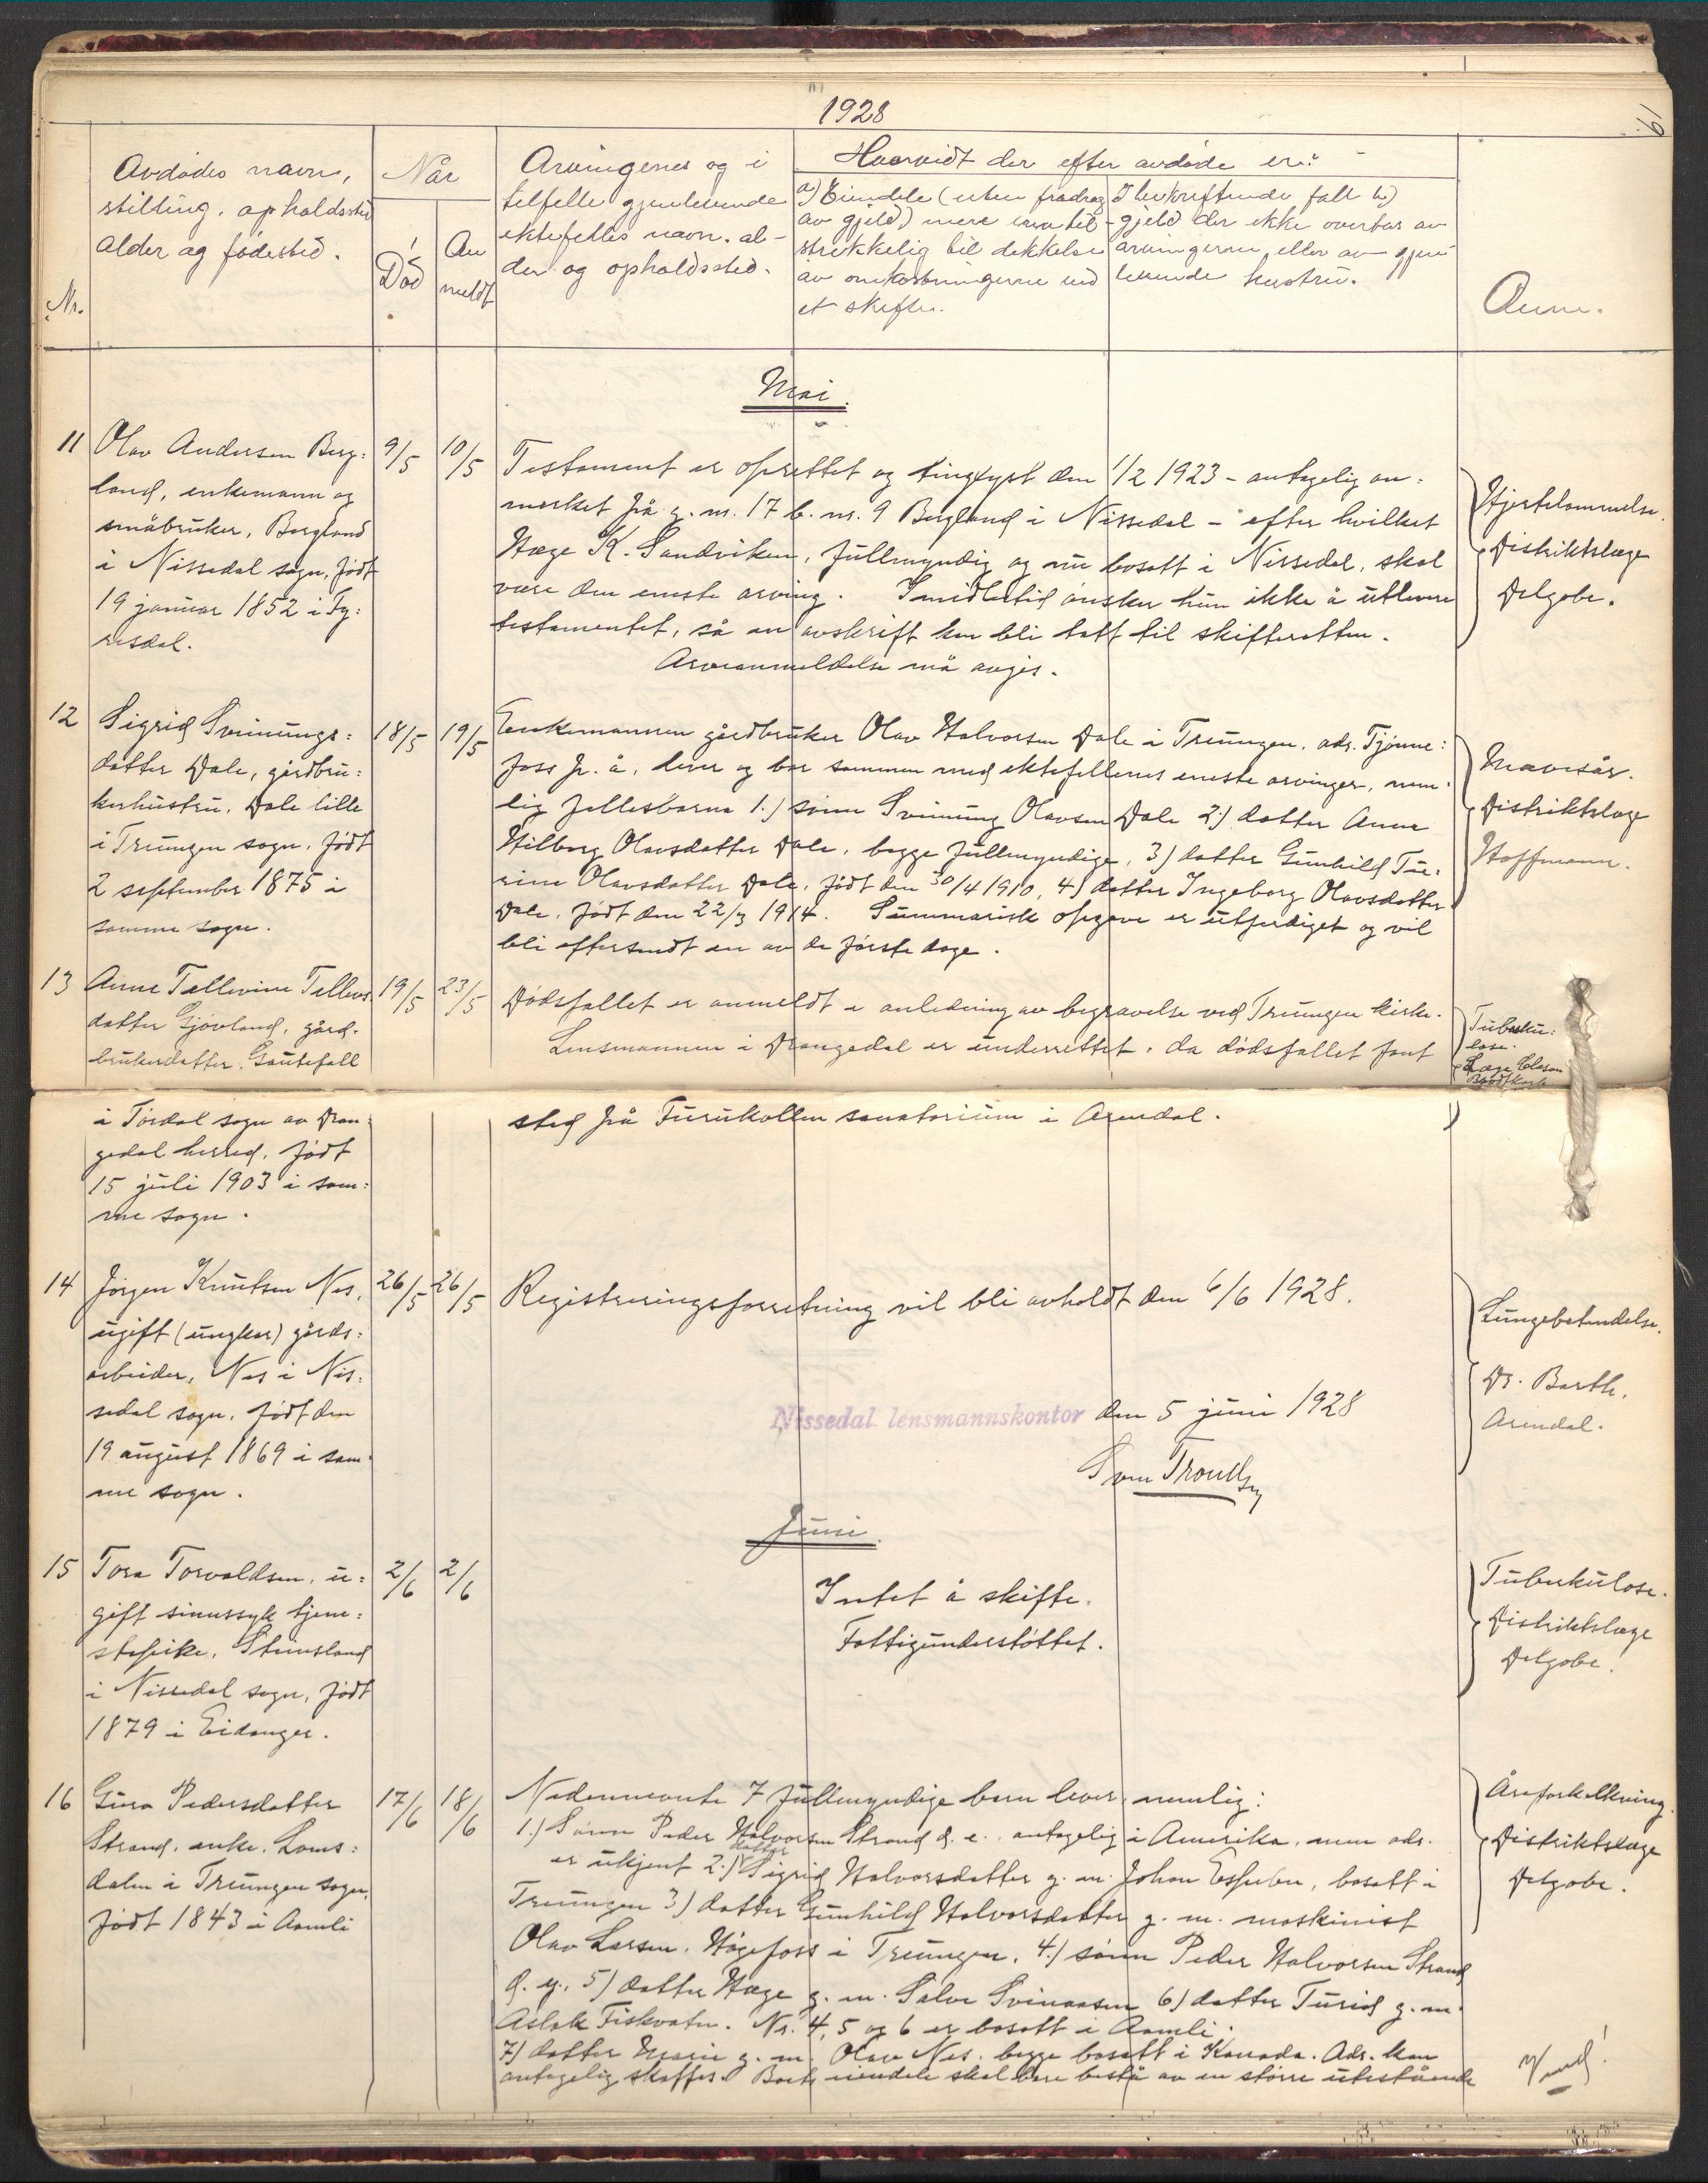 1928
19.
Nr.
Avdødes navn,
stilling, opholdssted
alder og fødested.
Når
Død
An
meldt
Arvingenes og i
tilfelle gjenlevende
ektefelles navn, al-
der og opholdssted.
Hvorvidt der efter avdøde er:
a) Eiendele (uten fradrag
av gjeld) mere enn til-
strekkelig til dekkelse
av omkostningerne ved
et skifte.
I bekreftende fall b)
gjeld der ikke overtas av
arvingerne eller av gjen
levende hustru.
Anm.
Mai.
11 Olav Andersen Berg:
land, enkemann og
småbruker, Bergland
i Nissedal sogn, født
19 januar 1852 i Fy:
resdal.
9/5
10/5
Testament er oprettet og tinglyst den 1/2 1923 - antagelig an:
merket på g. nr. 17 b. nr. 9 Bergland i Nissedal - efter hvilket
Hæge K. Sandviken, fullmyndig og nu bosatt i Nissedal, skal
være den eneste arving. Imidlertid ønsker hun ikke å utlevere
testamentet, så en avskrift kan bli tatt til skifteretten.
Arveanmeldelse må avgis.
Hjertelammelse.
Distriktslæge
Delgobe.
12 Sigrid Sveinungs:
datter Dale, gårdbru:
kerhustru, Dale lille
i Treungen sogn, født
2 september 1875 i
samme sogn.
18/5
19/5
Enkemannen gårdbruker Olav Halvorsen Dale i Treungen, adr. Tjønne:
foss p. å, lever og bor sammen med ektefellenes eneste arvinger, nem:
lig fellesbarna 1.) sønn Sveinung Olavsen Dale 2.) datter Anne
Hilborg Olavsdatter Dale, begge fullmyndige, 3) datter Gunhild Tu:
rine Olavsdatter Dale, født den 30/4 1910, 4) datter Ingeborg Olavsdatter
Dale, født den 22/3 1914. Summarisk opgave er utferdiget og vil
bli eftersendt en av de første dage.
Mavesår.
Distriktslæge
Hoffmann.
13 Anne Tellevine Tellevs
datter Gjøvland, gård-
brukerdatter, Gautefall
19/5
23/5
Dødsfallet er anmeldt i anledning av begravelse ved Treungen kirke.
Lensmannen i Drangedal er underrettet, da dødsfallet fant
Tuberku:
lose.
Læge Clason
i Tørdal sogn av Dran:
gedal herred, født
15 juli 1903 i sam:
me sogn.
sted på Furukollen sanatorium i Arendal.
14 Jørgen Knutsen Nes,
ugift (ungkar) gårds:
arbeider, Nes i Nis:
sedal sogn, født den
19 august 1869 i sam:
me sogn.
26/5
26/5
Registreringsforretning vil bli avholdt den 6/6 1928.
Lungebetendelse.
Dr. Barth,
Arendal.
Nissedal lensmannskontor den 5 juni 1928
Juni.
15 Tora Torvaldsen, u:
gift sinnssyk tjene:
stepike, Steinsland
i Nissedal sogn, født
1879 i Eidanger.
2/6
2/6
Intet å skifte.
Fattigunderstøttet.
Tuberkulose.
Distriktslæge
Delgobe.
16 Guro Pedersdatter
Strand, enke, Loms:
dalen i Treungen sogn,
født 1843 i Aamli
17/6
18/6
Nedennevnte 7 fullmyndige barn lever, nemlig:
1.) Sønn Peder Halvorsen Strand d. e., antagelig i Amerika, men adr.
er ukjent 2.) datter Sigrid Halvorsdatter g. m. Johan Espeben, bosatt i
Treungen 3.) datter Gunhild Halvorsdatter g. m. maskinist
Olav Larsen, Høgefoss i Treungen, 4.) sønn Peder Halvorsen Strand
d. y., 5) datter Hæge g. m. Salve Sveinassen 6) datter Turid g. m.
Aslak Fiskvatn. Nr. 4, 5 og 6 er bosatt i Aamli.
7) datter Marie g. m. Olav Nes, begge bosatt i Kanada. Adr. kan
antagelig skaffes. Boets eiendele skal bare bestå av en større utestående
Åreforkalkning.
Distriktslæge
Delgobe.
Vend!